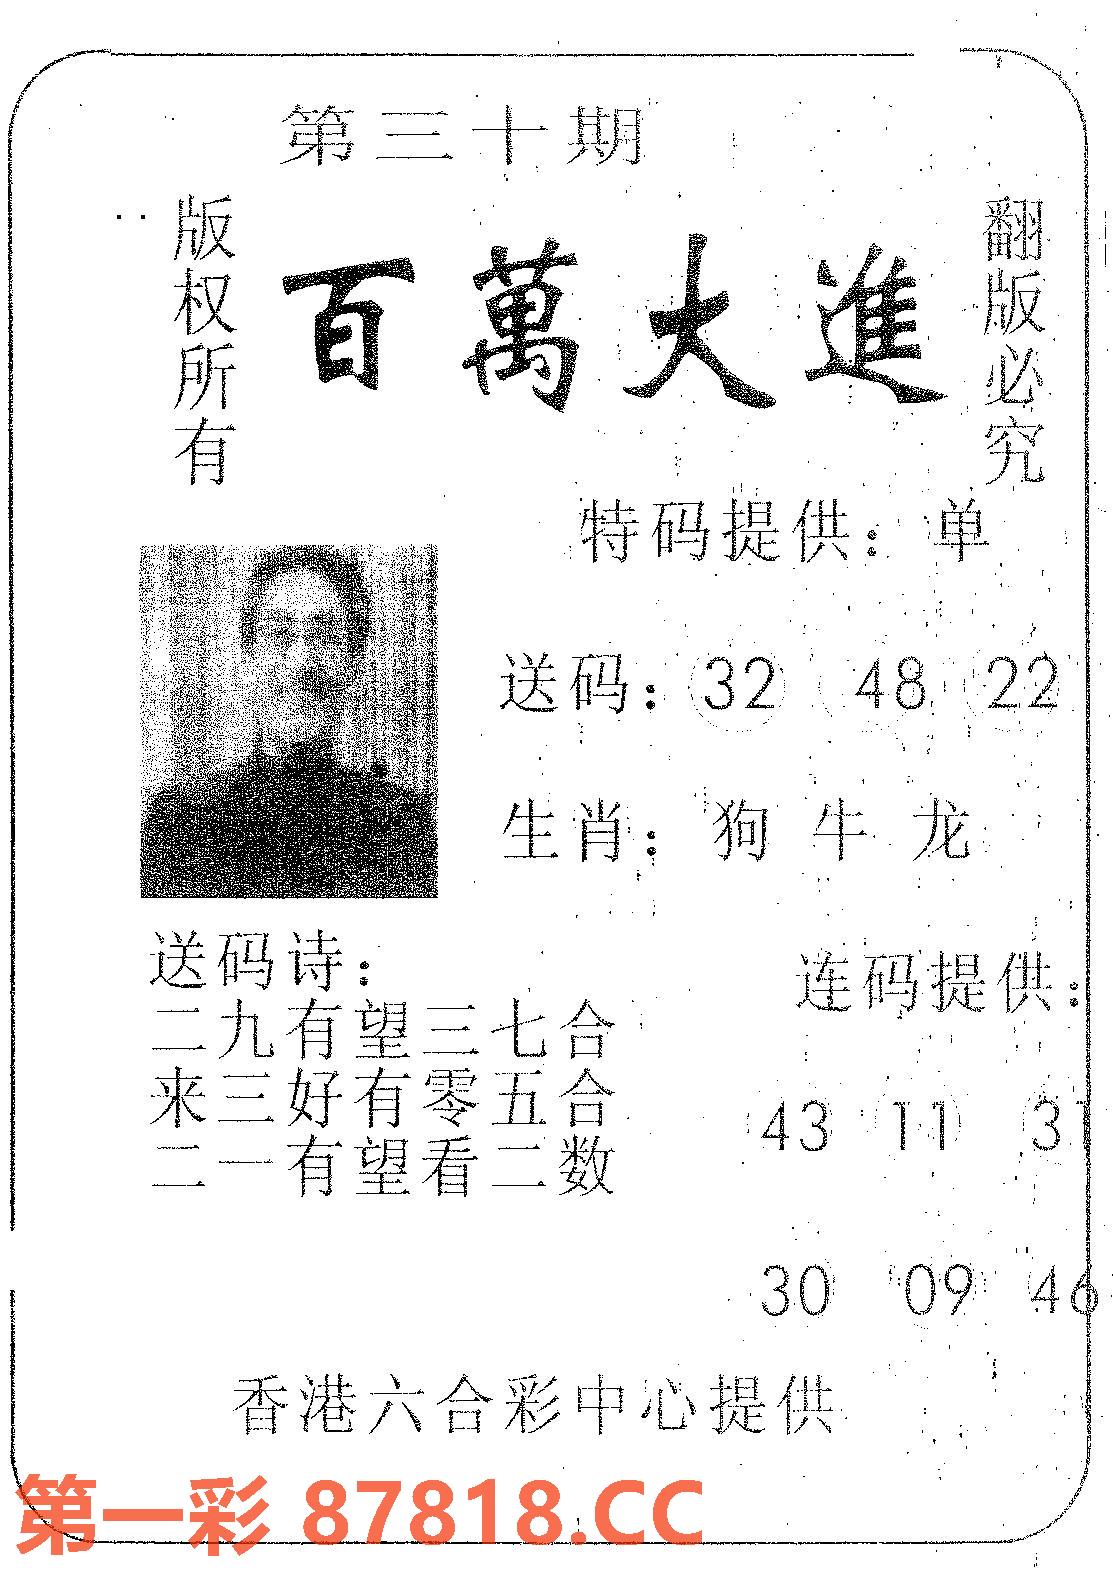 第三十期
版权所有
百萬大進
翻版必究
特码提供：单
送码：32 48 22
生肖：狗 牛 龙
送码诗：
二九有望三七合
来三好有零五合
二一有望看二数
连码提供：
43 11 31
30 09 46
香港六合彩中心提供
第一彩 87818.CC